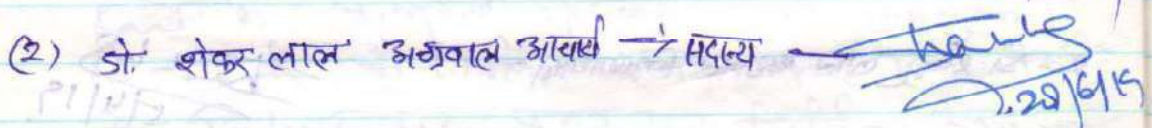 (2) डो. शेकर लाल अग्रवाल आचार्य → सदस्य